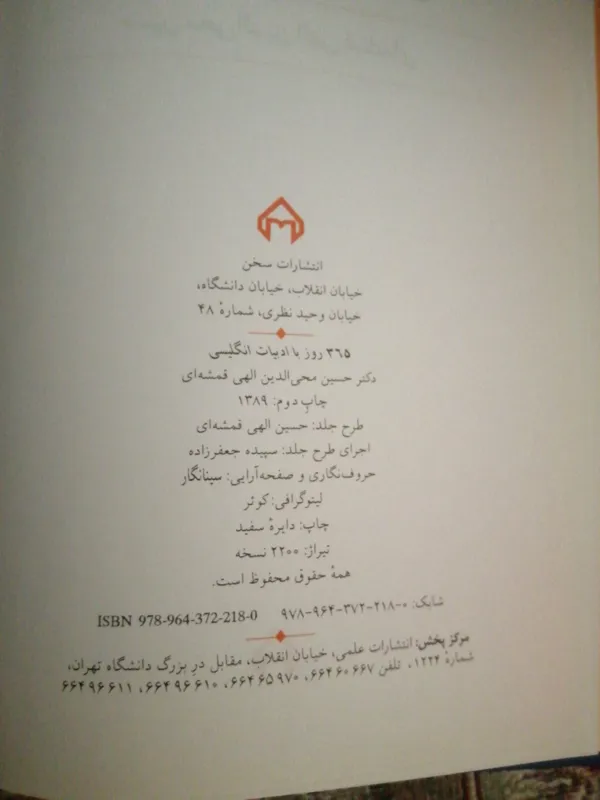 انتشارات سخن
خیابان انقلاب، خیابان دانشگاه،
خیابان وحید نظری، شمارهٔ ۴۸
۳۶۵ روز با ادبیات انگلیسی
دکتر حسین محی‌الدین الهی قمشه‌ای
چاپ دوم: ۱۳۸۹
طرح جلد: حسین الهی قمشه‌ای
اجرای طرح جلد: سپیده جعفرزاده
حروف‌نگاری و صفحه‌آرایی: سینانگار
لیتوگرافی: کوثر
چاپ: دایرهٔ سفید
تیراژ: ۲۲۰۰ نسخه
همهٔ حقوق محفوظ است.
شابک: ۰-۲۱۸-۳۷۲-۹۶۴-۹۷۸ ISBN 978-964-372-218-0
مرکز پخش: انتشارات علمی، خیابان انقلاب، مقابل در بزرگ دانشگاه تهران،
شمارهٔ ۱۲۲۴، تلفن ۶۶۷ ۶۰ ۶۶۴، ۹۷۰ ۶۵ ۶۶۴، ۶۱۰ ۹۶ ۶۶۴، ۶۱۱ ۹۶ ۶۶۴